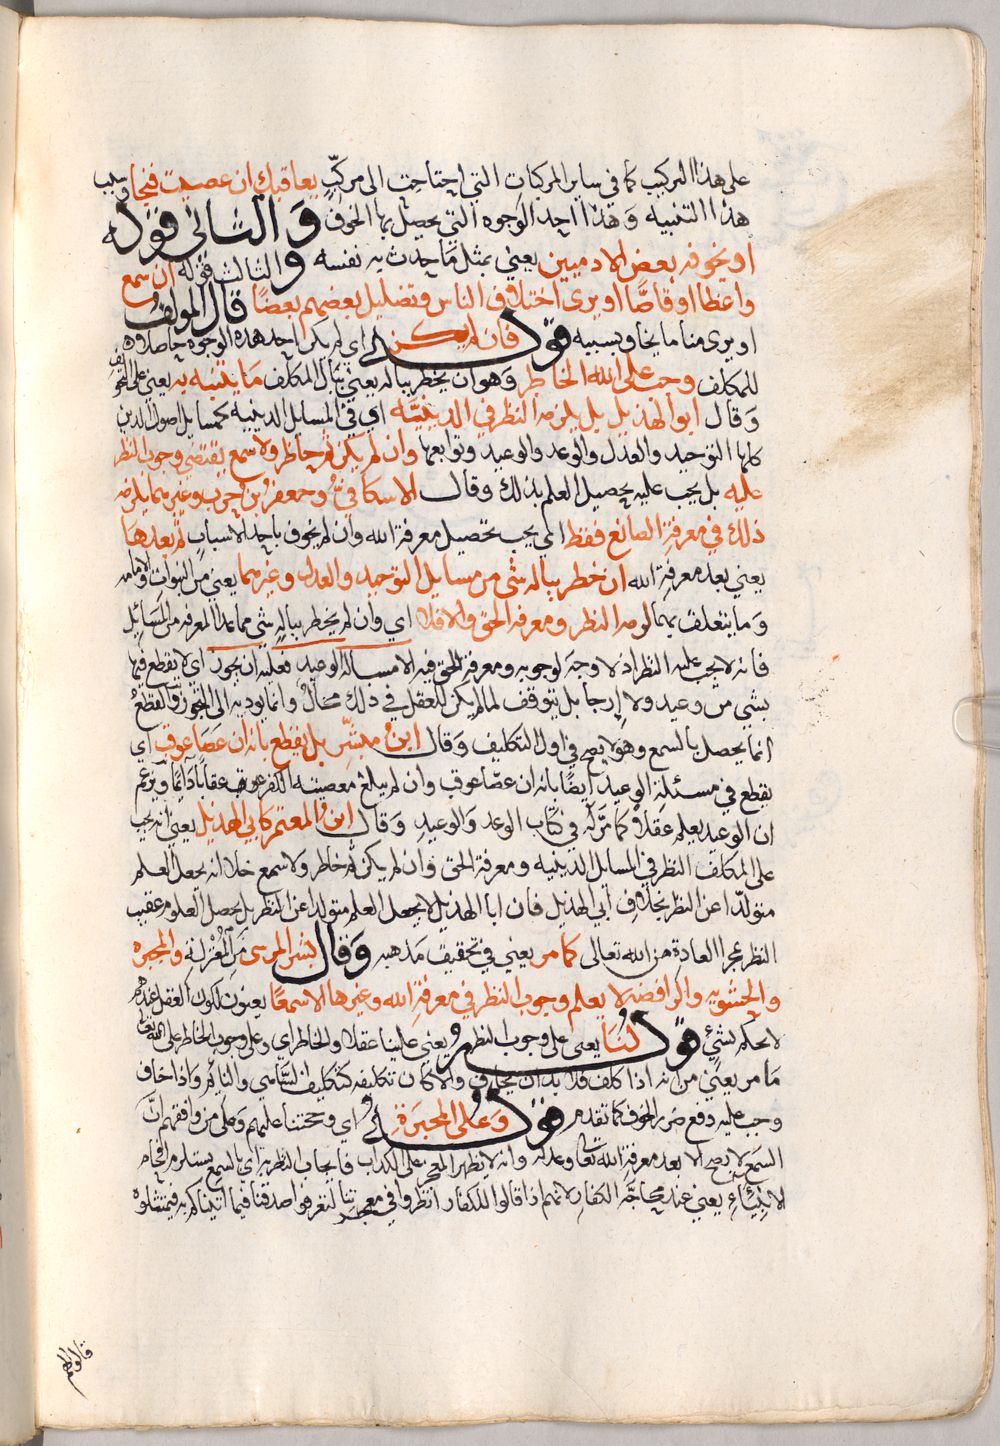 على هذا التركيب كما في ساير المركبات التي احتاجت الى مركّب يعاقبك ان عصيت فنجا وسلب
هذا التنبيه وهذا احد الوجوه التي يحصل بها الخوف والثاني قوله
او يخوفه بعض الادميين يعني بمثل ما حدث به نفسه والثالث قوله ان سمع
واعظا او قاصًّا او يرى اختلاف الناس وتضليل بعضهم بعضًا قال المولف
او يرى مناما يخاف بسببه قوله فان لم يكن اي لم يكن احد هذه الوجوه حاصلا
للمكلف وجب على الله الخاطر وهو ان يخطر بباله يعني ببال المكلف ما يتنبه به يعني على التخوف
وقال ابو الهذيل بل يلزمه النظر في الدينيّه اي في المسايل الدينيه كمسايل اصول الدين
كلها التوحيد والعدل والوعد والوعيد وتوابعها وان لم يكن ثم خاطر ولا سمع يقتضي وجوب النظر
عليه بل يجب عليه تحصيل العلم بذلك وقال الاسكافيّ وجعفر بن حرب وغيرهما يلزمه
ذلك في معرفة الصانع فقط اي يجب تحصيل معرفة الله وان لم يخوف باحد الاسباب ثم بعدها
يعني بعد معرفة الله ان خطر بباله شي من مسايل التوحيد والعدل وغيرهما يعني من النبوات والامامه
وما يتعلق بهما لزمه النظر ومعرفة الحق والا فلا اي وان لم يخطر بباله شي مما عدا المعرفه من المسَائِل
فانه لا يجب عليه النظر اذ لا وجه لوجوبه ومعرفة الحق فيه الا مسالة الوعيد فعليه ان يجوز اي لا يقطع فيها
بشي من وعيد ولا ارجا بل يتوقف لما لم يكن للعقل في ذلك مجالٌ وانما يوديه الى التجوز والقطعُ
انما يحصل بالسمع وهو لا يصح في اول التكليف وقال ابن مبشّر بل يقطع بانه ان عصا عوقب اي
يقطع في مسئلة الوعيد ايضًا بانه ان عصا عوقب وان لم يبلغ معصيته الكفر عوقب عقابا دآيمًا ويزعم
ان الوعيد يعلم عقلا كما نزله في كتاب الوعد والوعيد وقال ابن المعتمر كابي الهذيل يعني انه يجب
على المكلف النظر في المسايل الدينيه ومعرفة الحق وان لم يكن ثم خاطر ولا سمع خلا انه يجعل العلم
متولّدا عن النظر بخلاف ابي الهذيل فان ابا الهذيل لا يجعل العلم متولدا عن النظر بل يحصل العلوم عقيب
النظر بمجرا العادة من الله تعالى كما مر يعني في تحقيق مذهبه وقال بشر المريسي من المعتزلة والمجبره
والحشويه والرافضه لا يعلم وجوب النظر في معرفة الله وغيرها الا سمعًا يعنون لكون العقل عندهم
لا يحكم بشيْءٍ قوله لنا يعني على وجوب النظر يعني علينا عقلا والخاطر اي وعلى وجوب الخاطر على الله تعالى
ما مر يعني من انه اذا كلف فلا بد ان يخاف والا كان تكليفه كتكليف السَّاهي والنايم واذا خاف
وجب عليه دفع ضرر الخوف كما تقدم قوله وعلى المجبرة اي وحجتنا عليهم وعلى من وافقهم انَّ
السمع لا يصح الا بعد معرفة الله تعالى وعدله وانه لا يظهر المعجز على الكذاب فايجاب النظر به اي بالسمع يستلزم افحام
الانبيآءِ يعني عند محاجّة الكفار لانهم اذا قالوا للكفار انظروا في معجزتنا لتعرفوا صدقنا فيما اتيناكم به فيمتثلوه